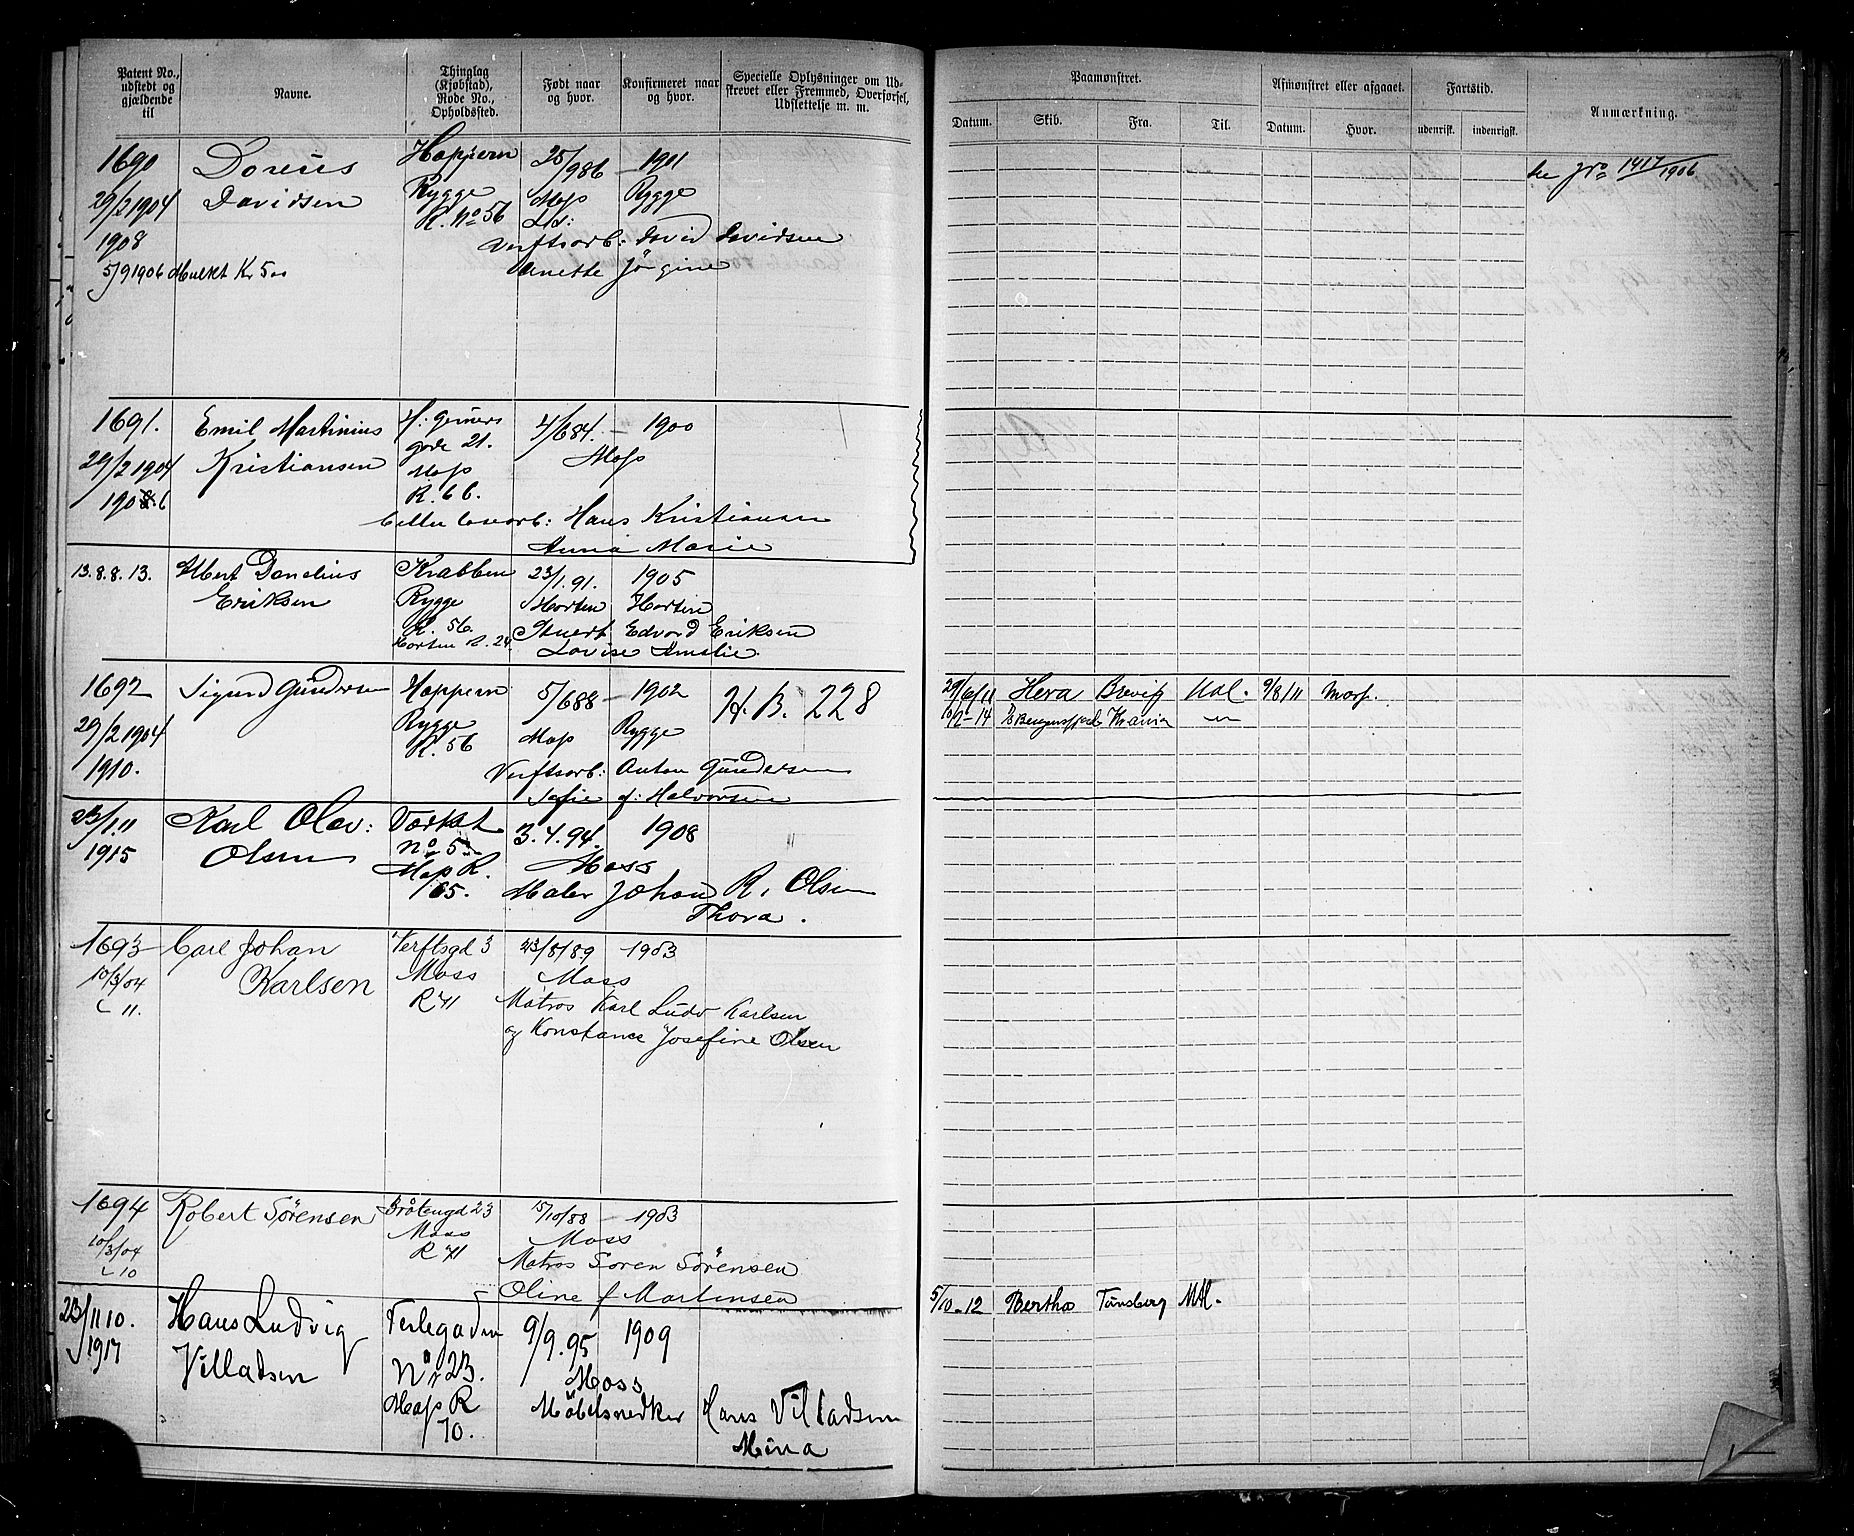 Patent No., udstedt og gjældende til
Navne.
Thinglag (Kjøbstad), Rode No., Opholdssted.
Født naar og hvor.
Konfirmeret naar og hvor.
Specielle Oplysninger om Ubstrevet eller Fremmed, Overførsel, Udslettelse m. m.
Paamønstret.
Datum. Skib. Fra. Til.
Afmønstret eller afgaaet.
Datum. Hvor.
Fartstid.
udenrigsk. indenrigsk.
Anmærkning.
1690 Hoppern 25/986 - 1901
Rygge Moss Rygge
29/2 1904 Davidsen R. No 56
1908 Verftsarb: David Davidsen
5/9 1906 Mulkt Kr 5 Anette Jørgine
se No 1417/1906
1691. Emil Martinius 4/684. - 1900
gade 21.
29/2 1904 Kristiansen Moss Moss
R. 66.
Hans Kristiansen
Anna Marie
13.8.8.13. Albert Danelius Krabben 23/1.91. 1905
Eriksen Rygge Horten Horten
R. 56. Edvard Eriksen
Horten R. 24. Lovise Amalie.
1692 Sigurd Gundersen Hoppern 5/688 - 1902 H.B. 228
29/6/11 Hera Brevig Udl. 9/8/11 Moss.
29/2 1904 Rygge Moss Rygge
R. 56
1910. Verftsarb: Anton Gundersen
Sofie f: Halvorsen
23/1.11 Karl Olav: Værket 3.4.94. 1908
1915 Olsen No 5 Moss
Moss R. 65. Maler Johan R. Olsen
Thora.
1693 Carl Johan Verftsgd 3 23/8/89 - 1903
10/3/04 Karlsen Moss Moss
11. R 41 Matros Karl Ludv Karlsen
og Konstance Josefine Olsen
1694 Robert Sørensen Bråtengd 23 15/10/88 - 1903
10/3/04 Moss Moss
10 R 41 Matros Soren Sörensen
Oline f Martinsen
23/11 10. Hans Ludvig 9/9.95 1909
5/10-12 Bertha Tønsberg
1917 Villadsen Nr 23. Moss
Moss R 70. Möbelsnedker Hans Villadsen
Mina